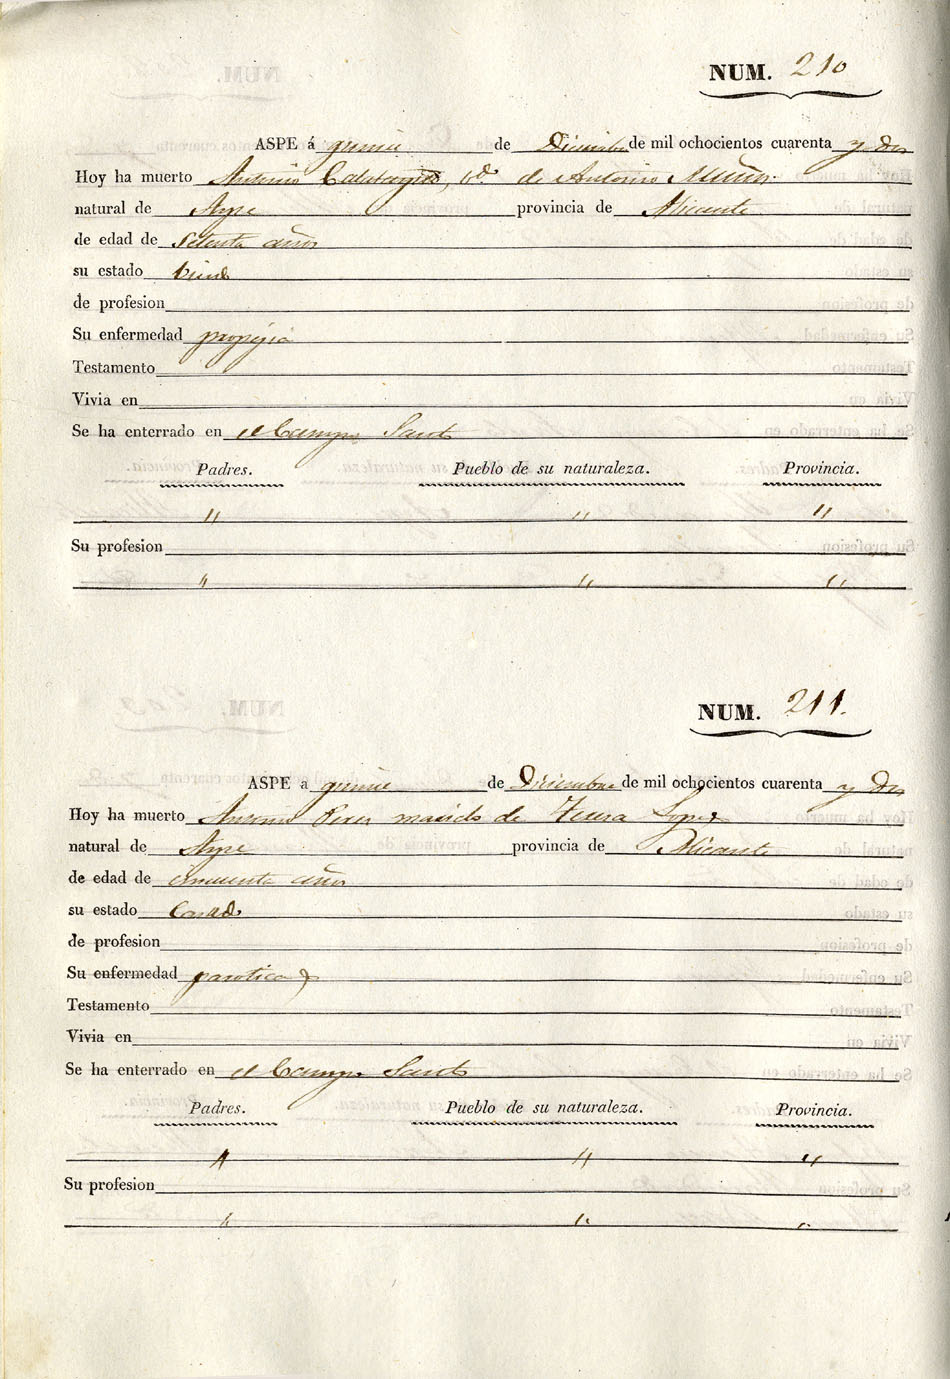 NUM. 210
ASPE á quince de Diciembre de mil ochocientos cuarenta y dos
Hoy ha muerto Antonio Calatayud, vdo. de Antonia Muñoz.
natural de Aspe provincia de Alicante
de edad de setenta años
su estado viudo
de profesion
Su enfermedad
Testamento
Vivia en
Se ha enterrado en el Campo Santo
Padres. Pueblo de su naturaleza. Provincia.
" " "
Su profesion
" " "
NUM. 211.
ASPE a quince de Diciembre de mil ochocientos cuarenta y dos
Hoy ha muerto Antonio Perez marido de Teresa Lopez
natural de Aspe provincia de Alicante
de edad de cincuenta años
su estado Casado
de profesion
Su enfermedad
Testamento
Vivia en
Se ha enterrado en el Campo Santo
Padres. Pueblo de su naturaleza. Provincia.
" " "
Su profesion
" " "